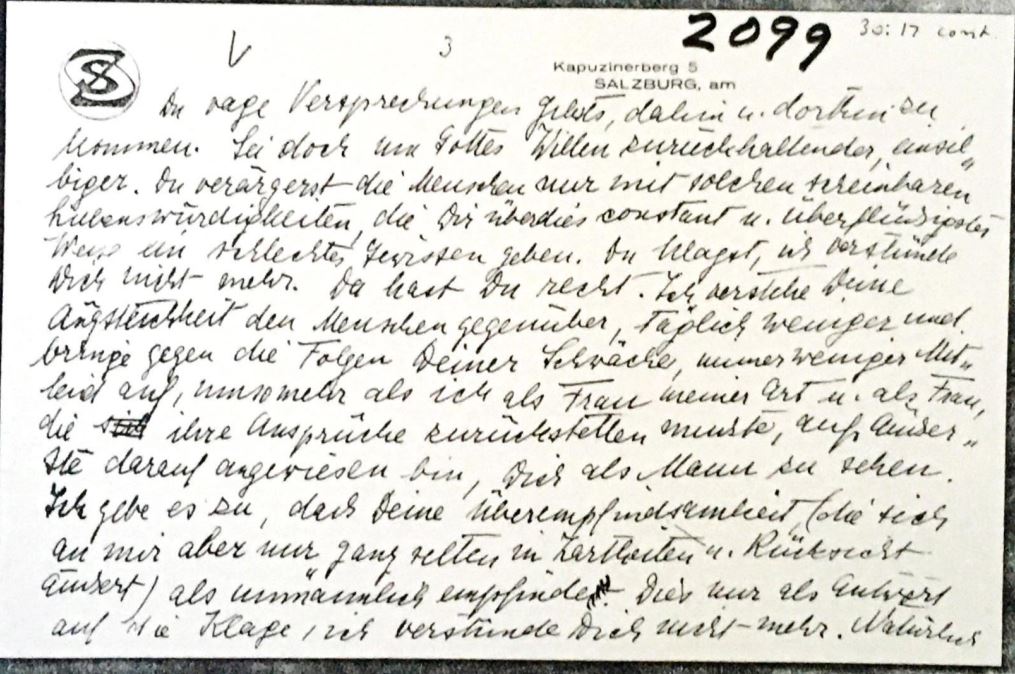 2099 30:17 cont.
V 3
SZ
Kapuzinerberg 5
SALZBURG, am
Du vage Versprechungen giebts, dahin u. dorthin zu
kommen. Sei doch um Gottes Willen zurückhaltender, einsil„
biger. Du verärgerst die Menschen nur mit solchen scheinbaren
Liebenswürdigkeiten, die Dir überdies constant u. überflüssigster
Weise ein schlechtes Gewissen geben. Du klagst, ich verstünde
Dich nicht mehr. Da hast Du recht. Ich verstehe Deine
Ängstlichkeit den Menschen gegenüber, täglich weniger und
bringe gegen die Folgen Deiner Schwäche, immer weniger Mit„
leid auf, umsomehr als ich als Frau meiner Art u. als Frau,
die ihre Ansprüche zurückstellen musste, aufs Äuser„
ste darauf angewiesen bin, Dich als Mann zu sehen.
Ich gebe es zu, dass Deine Überempfindsamkeit, (die sich
an mir aber nur ganz selten in Zartheiten u. Rücksicht
äusert) als unmännlich empfinde. Dies nur als Antwort
auf die Klage, ich verstünde Dich nicht mehr. Natürlich